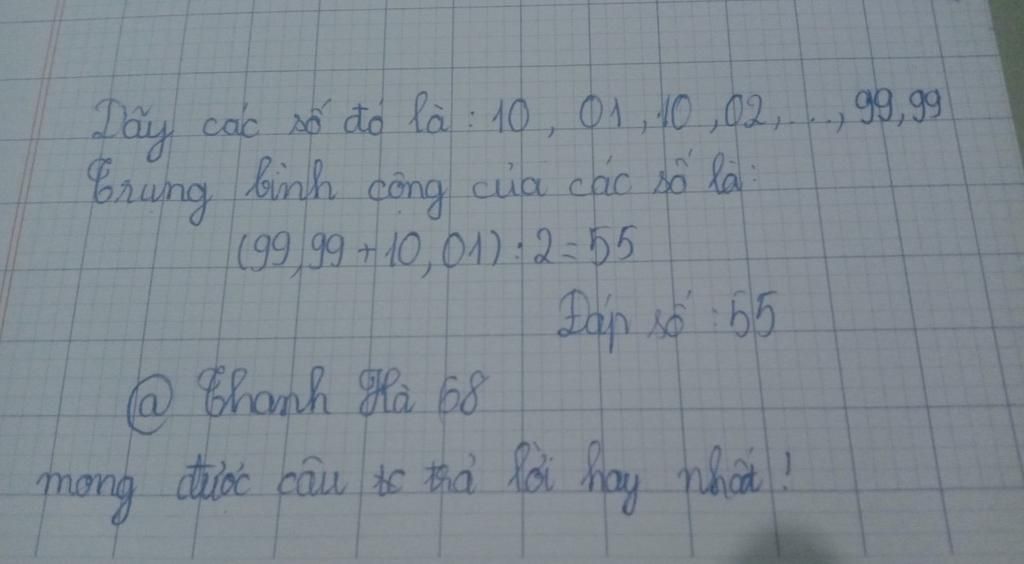 Dãy các số đó là : 10, 01, 10, 02, ..., 99, 99
Trung bình cộng của các số là :
(99, 99 + 10, 01) : 2 = 55
Đáp số : 55
@ Thanh Hà 68
mong được câu tc trả lời hay nhất !